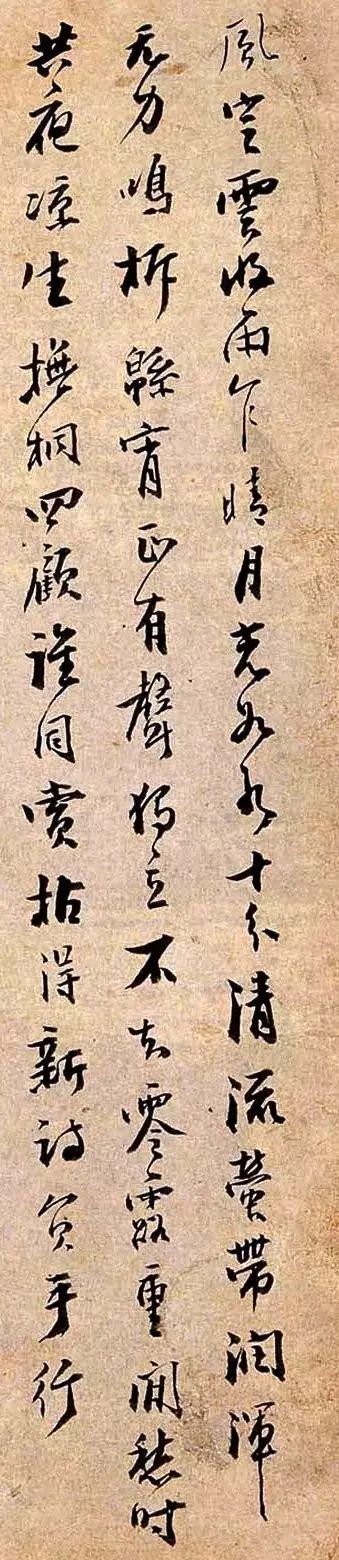 風定雲收雨乍晴月光如水十分清流螢帶潤渾
无力鳴柝緜宵正有聲獨立不知零露重閒愁时
共夜凉生撫桐四顧誰同賞拈得新詩負手行